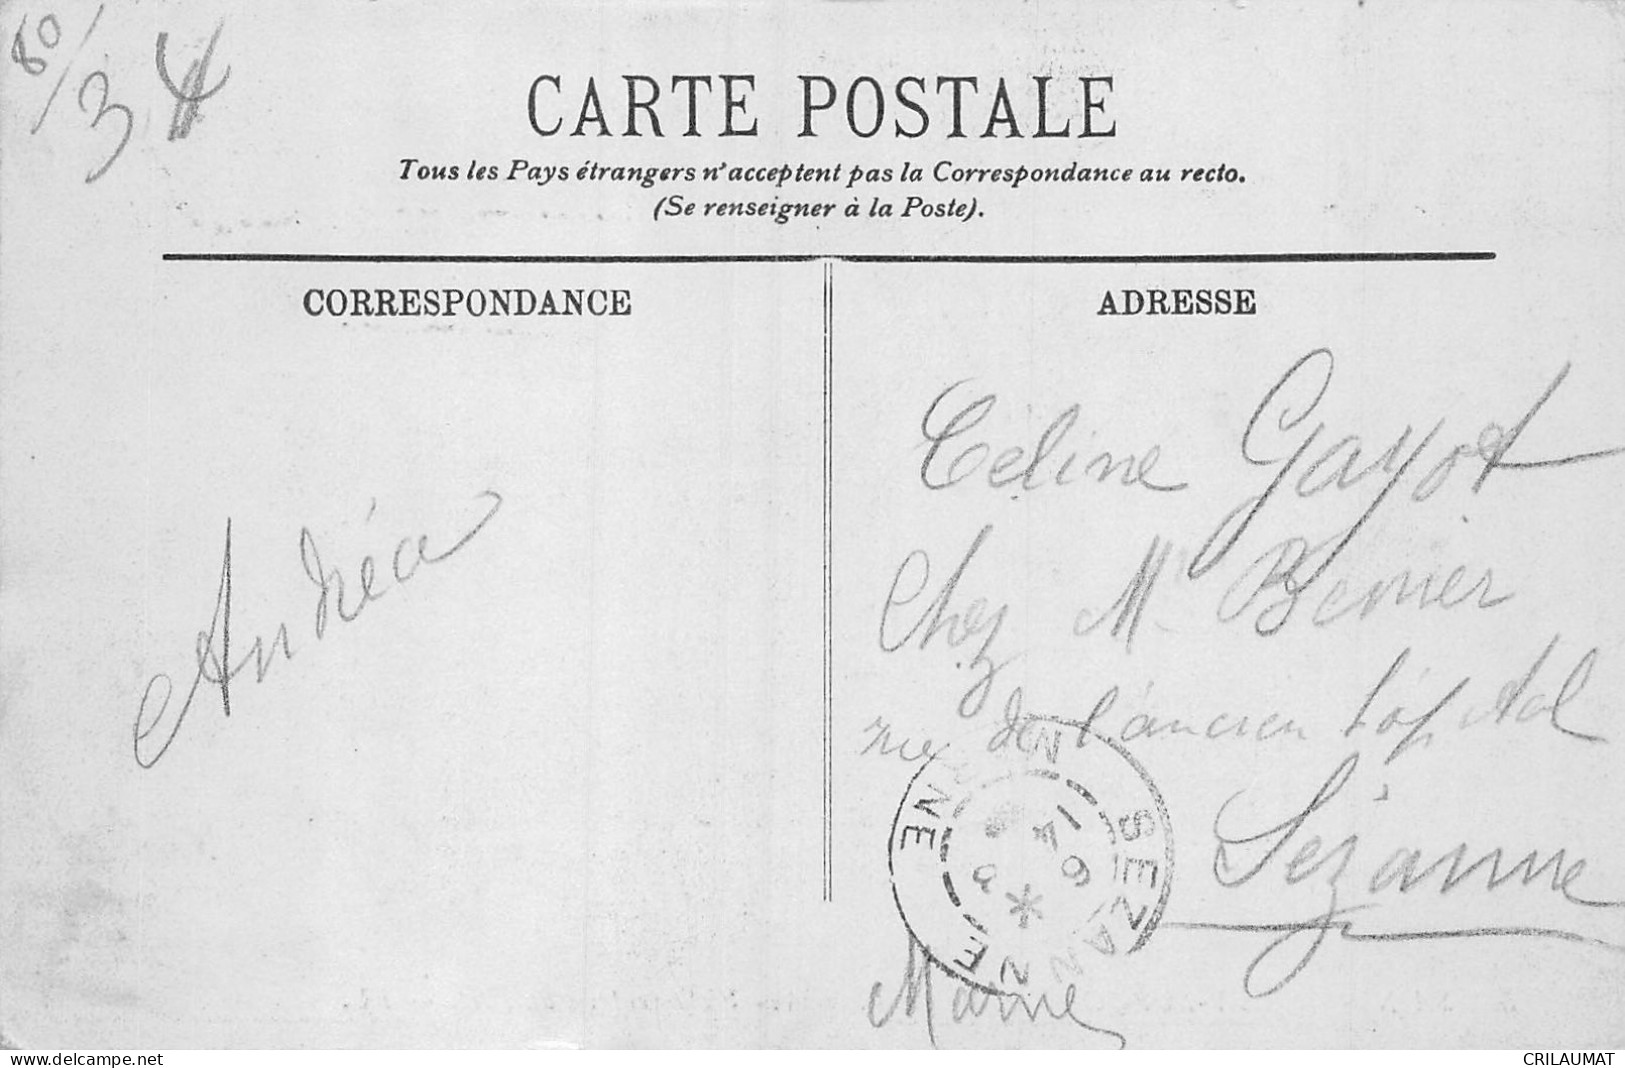 80/
34
CARTE POSTALE
Tous les Pays étrangers n'acceptent pas la Correspondance au recto.
(Se renseigner à la Poste).
CORRESPONDANCE
ADRESSE
Andréa
Céline Gayot
Chez Mr
rue de l'ancien hôpital
Sézanne
Marne
SEZANNE
14
www.delcampe.net
CRILAUMAT